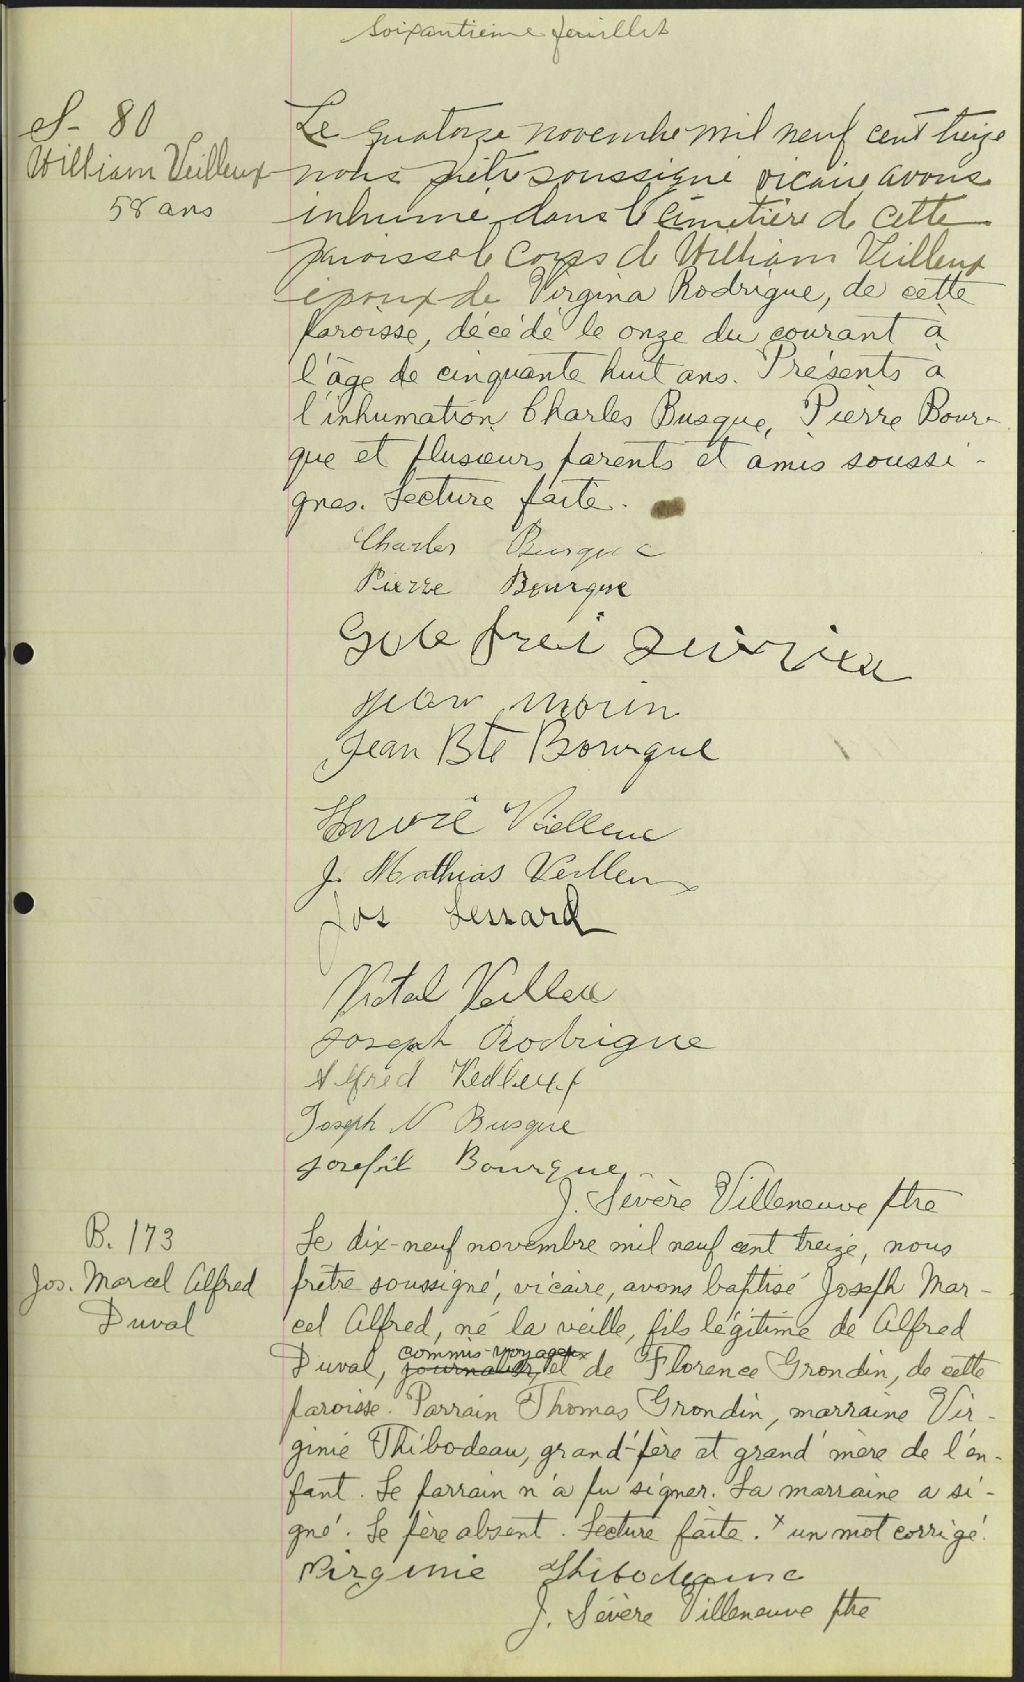 soixantième feuillet
S- 80
William Veilleux
58 ans
Le quatorze novembre mil neuf cent treize
nous prêtre soussigné vicaire avons
inhumé dans le cimetière de cette
paroisse le corps de William Veilleux
époux de Virgina Rodrigue, de cette
paroisse, décédé le onze du courant à
l'âge de cinquante huit ans. Présents à
l'inhumation Charles Busque, Pierre Bour-
que et plusieurs parents et amis soussi-
gnés. Lecture faite.
Charles Busque
Pierre Bourque
Jean Morin
Jean Bte Bourque
Honoré Veilleux
J. Mathias Veilleux
Jos Lessard
Vital Veilleu
Joseph Rodrigue
Alfred Veilleux
Joseph N Busque
Josefil Bourque
J. Sévère Villeneuve ptre
B. 173
Jos. Marcel Alfred
Duval
Le dix-neuf novembre mil neuf cent treize, nous
prêtre soussigné, vicaire, avons baptisé Joseph Mar-
cel Alfred, né la veille, fils légitime de Alfred
commis-voyageur x
Duval, journalier, et de Florence Grondin, de cette
paroisse. Parrain Thomas Grondin, marraine Vir-
ginie Thibodeau, grand-père et grand'mère de l'en-
fant. Le parrain n'a pu signer. La marraine a si-
gné. Le père absent. Lecture faite. x un mot corrigé.
Virginie Thibodeau
J. Sévère Villeneuve ptre